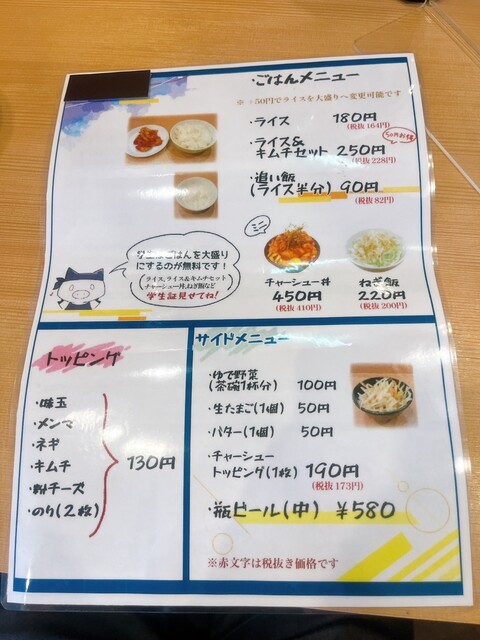 ・ごはんメニュー
※+50円でライスを大盛りへ変更可能です
・ライス 180円
(税抜164円)
・ライス&
キムチセット 250円
(税抜228円)
50円お得
・追い飯
(ライス半分) 90円
(税抜82円)
ミニ
チャーシュー丼
450円
(税抜410円)
ねぎ飯
220円
(税抜200円)
ごはんを大盛り
にするのが無料です!
(ライス,ライス&キムチセット
チャーシュー丼,ねぎ飯など
学生証見せてね!
トッピング
・味玉
・メンマ
・ネギ
・キムチ
・粉チーズ
・のり(2枚)
130円
サイドメニュー
・ゆで野菜
(茶碗1杯分) 100円
・生たまご(1個) 50円
・バター(1個) 50円
・チャーシュー
トッピング(1枚) 190円
(税抜173円)
・瓶ビール(中) ¥580
※赤文字は税抜き価格です